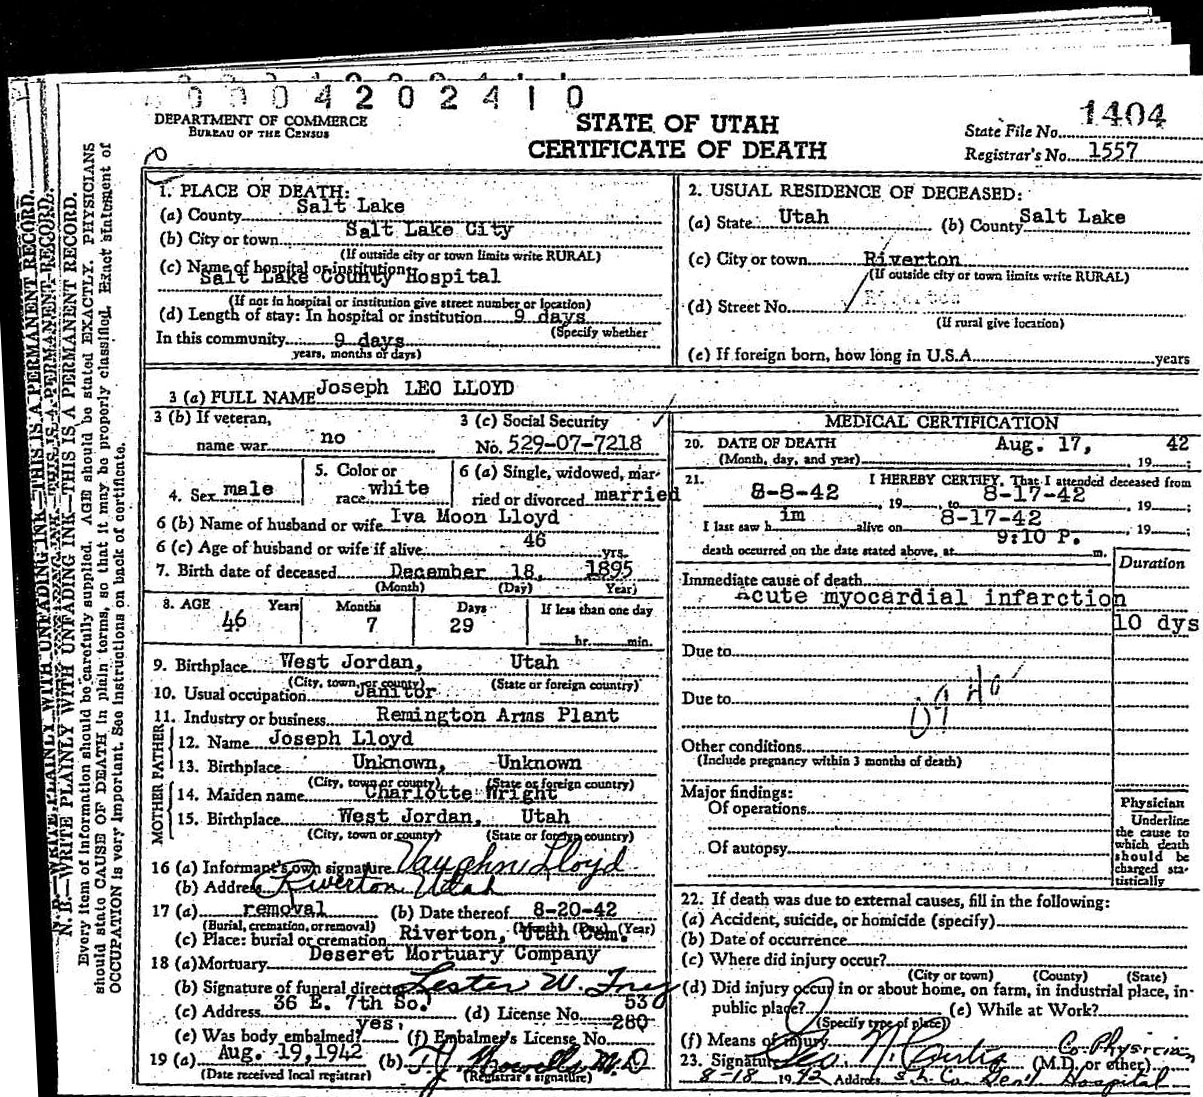 0 0 0 4 2 0 2 4 1 0
DEPARTMENT OF COMMERCE
BUREAU OF THE CENSUS
STATE OF UTAH
CERTIFICATE OF DEATH
State File No. 1404
Registrar's No. 1557
N. B.—WRITE PLAINLY WITH UNFADING INK—THIS IS A PERMANENT RECORD.
Every item of information should be carefully supplied. AGE should be stated EXACTLY. PHYSICIANS
should state CAUSE OF DEATH in plain terms, so that it may be properly classified. Exact statement of
OCCUPATION is very important. See instructions on back of certificate.
1. PLACE OF DEATH:
(a) County Salt Lake
(b) City or town Salt Lake City
(If outside city or town limits write RURAL)
(c) Name of hospital or institution
Salt Lake County Hospital
(If not in hospital or institution give street number or location)
(d) Length of stay: In hospital or institution 9 days
(Specify whether
In this community 9 days
years, months or days)
2. USUAL RESIDENCE OF DECEASED:
(a) State Utah (b) County Salt Lake
(c) City or town Riverton
(If outside city or town limits write RURAL)
(d) Street No.
(If rural give location)
(e) If foreign born, how long in U.S.A. years
3 (a) FULL NAME Joseph LEO LLOYD
3 (b) If veteran,
name war no
3 (c) Social Security
No. 529-07-7218
4. Sex male
5. Color or
race white
6 (a) Single, widowed, mar-
ried or divorced married
6 (b) Name of husband or wife Iva Moon Lloyd
6 (c) Age of husband or wife if alive 46 yrs.
7. Birth date of deceased December 18, 1895
(Month) (Day) Year)
8. AGE Years Months Days If less than one day
46 7 29 hr. min.
9. Birthplace West Jordan, Utah
(City, town, or county) (State or foreign country)
10. Usual occupation Janitor
11. Industry or business Remington Arms Plant
FATHER
12. Name Joseph Lloyd
13. Birthplace Unknown, Unknown
(City, town or county) (State or foreign country)
MOTHER
14. Maiden name Charlotte Wright
15. Birthplace West Jordan, Utah
(City, town or county) (State or foreign country)
16 (a) Informant's own signature Vaughn Lloyd
(b) Address Riverton Utah
17 (a) removal (b) Date thereof 8-20-42
(Burial, cremation, or removal) (Month) (Day) (Year)
(c) Place: burial or cremation Riverton, Utah Cem.
18 (a) Mortuary Deseret Mortuary Company
(b) Signature of funeral director Lester W.
530
(c) Address 36 E. 7th So. (d) License No. 280
(e) Was body embalmed? yes, (f) Embalmer's License No.
19 (a) Aug. 19, 1942 (b) T.J. Howells M.D
(Date received local registrar) (Registrar's signature)
MEDICAL CERTIFICATION
20. DATE OF DEATH Aug. 17, 19 42
(Month, day, and year)
21. I HEREBY CERTIFY, That I attended deceased from
8-8-42, 19 , to 8-17-42, 19 ;
I last saw h im alive on 8-17-42, 19 ;
death occurred on the date stated above, at 9:10 P. m.
Duration
Immediate cause of death
Acute myocardial infarction
10 dys
Due to
Due to
Other conditions
(Include pregnancy within 3 months of death)
Major findings:
Of operations
Of autopsy
Physician
Underline
the cause to
which death
should be
charged sta-
tistically
22. If death was due to external causes, fill in the following:
(a) Accident, suicide, or homicide (specify)
(b) Date of occurrence
(c) Where did injury occur?
(City or town) (County) (State)
(d) Did injury occur in or about home, on farm, in industrial place, in-
public place? (e) While at Work?
(Specify type of place)
(f) Means of injury
Co. Physician
23. Signature Leo N. Curtis (M.D. or other)
8-18 1942 Address S. L. Co. Gen'l Hospital